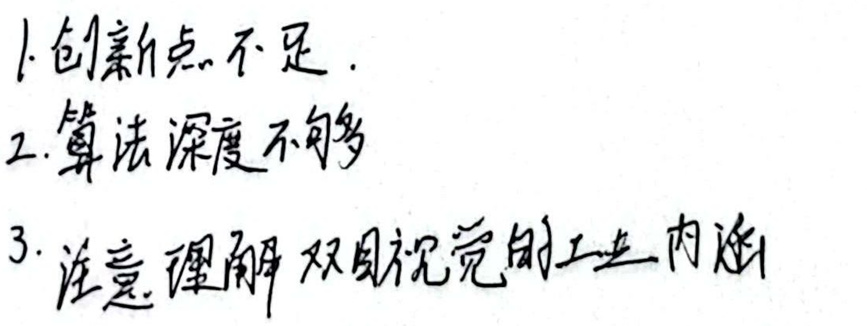 1. 创新点不足.
2. 算法深度不够
3. 注意理解双目视觉的工业内涵